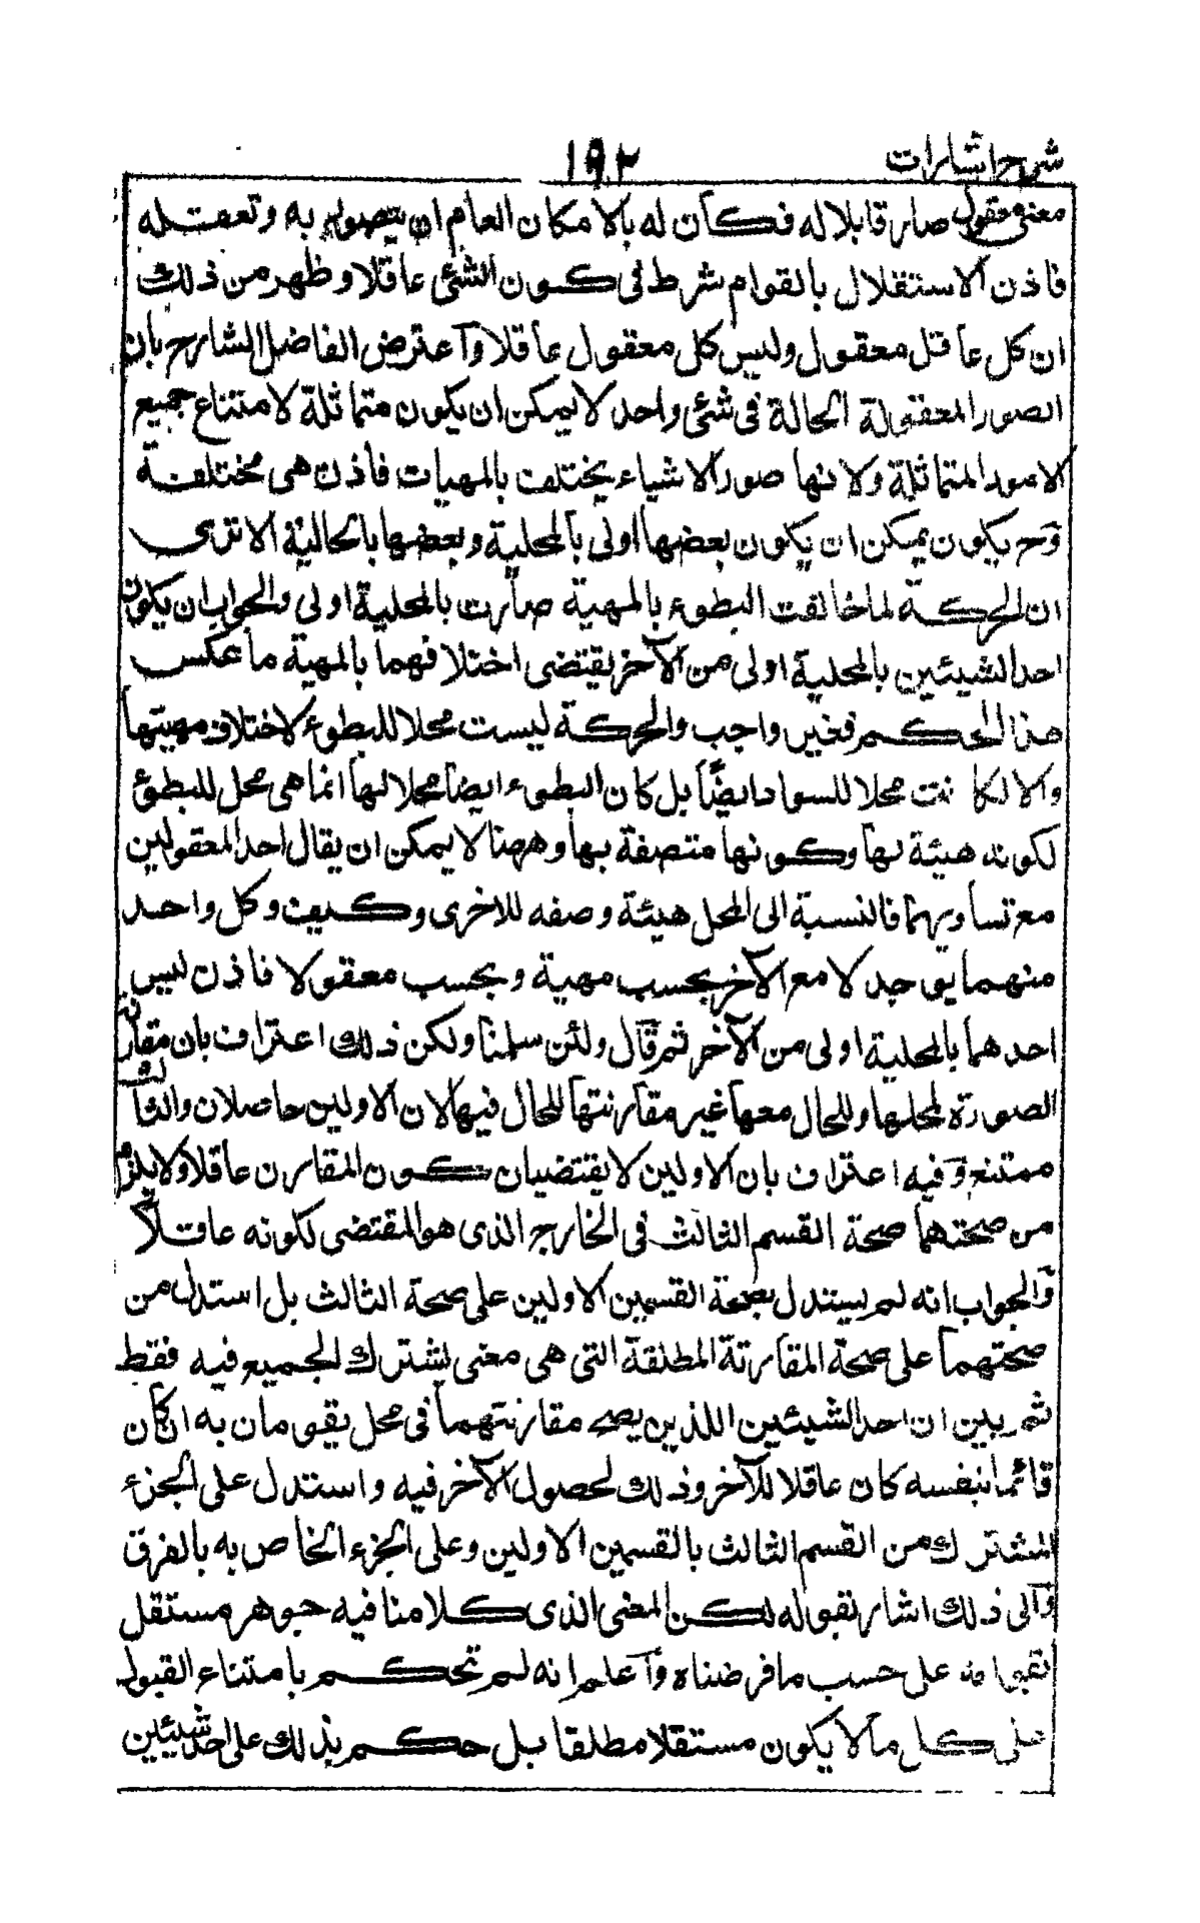 شرح اشارات
١٩٢
معنى معقول صار قابلا له فكان له بالامكان العام ان يتصور به وتعقله
فاذن الاستقلال بالقوام شرط فى كون الشئ عاقلا وظهر من ذلك
ان كل عاقل معقول وليس كل معقول عاقلا واعترض الفاضل الشارح بان
الصور المعقولة الحالة فى شئ واحد لا يمكن ان يكون متماثلة لامتناع جميع
الامور المتماثلة ولانها صور الاشياء يختلف بالمهيات فاذن هى مختلفة
وح يكون يمكن ان يكون بعضها اولى بالمحلية وبعضها بالحالية الا ترى
ان الحركة لما خالفت البطوء بالمهية صارت بالمحلية اولى والجواب ان يكون
احد الشيئين بالمحلية اولى من الآخر يقتضى اختلافهما بالمهية ما عكس
هذا الحكم فغير واجب والحركة ليست محلا للبطوء لاختلاف مهيتها
والا لكانت محلا للسواد ايضًا بل كان البطوء ايضا محلا لها انما هى محل للبطوئ
لكونه هيئة لها وكونها متصفة بها وههنا لا يمكن ان يقال احد المعقولين
مع تساويهما فالنسبة الى المحل هيئة وصفه للاخرى وكيف وكل واحد
منهما يوجد لا مع الآخر بحسب مهية وبحسب معقولا فاذن ليس
احدهما بالمحلية اولى من الآخر ثم قال ولئن سلمنا ولكن ذلك اعتراف بان مقارنة
الصورة لمحلها وللحال معها غير مقارنتها للحال فيها لان الاولين حاصلان والثالث
ممتنع وفيه اعتراف بان الاولين لا يقتضيان كون المقارن عاقلا ولا يلزم
من صحتهما صحة القسم الثالث فى الخارج الذى هو المقتضى لكونه عاقلا
والجواب انه لم يستدل بصحة القسمين الاولين على صحة الثالث بل استدل من
صحتهما على صحة المقارنة المطلقة التى هى معنى يشترك الجميع فيه فقط
ثم يبين ان احد الشيئين اللذين يصح مقارنتهما فى محل يقومان به ان كان
قائما بنفسه كان عاقلا للآخر وذلك لحصول الآخر فيه واستدل على الجزء
المشترك من القسم الثالث بالقسمين الاولين وعلى الجزء الخاص به بالفرق
والى ذلك اشار بقوله لكن المعنى الذى كلامنا فيه جوهر مستقل
بقوامه على حسب ما فرضناه واعلم انه لم تحكم بامتناع القبول
على كل ما لا يكون مستقلا مطلقا بل حكم بذلك على احد شيئين